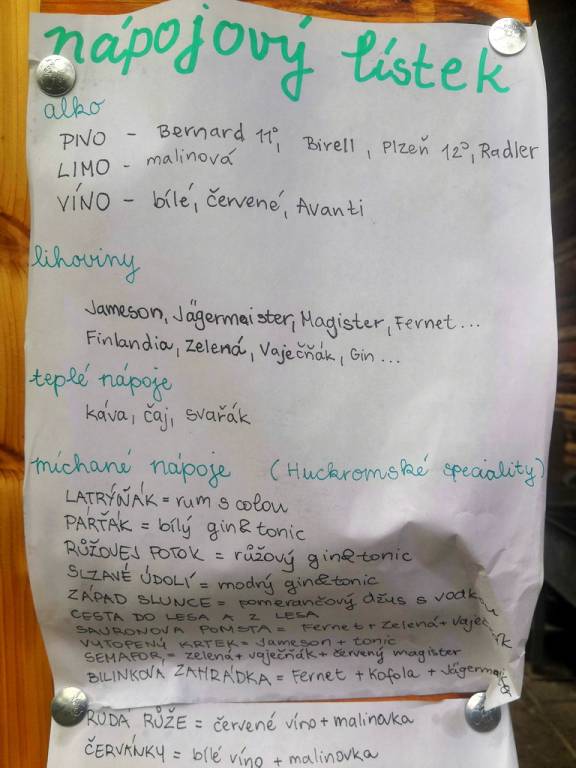 nápojový lístek
alko
PIVO - Bernard 11°, Birell, Plzeň 12°, Radler
LIMO - malinová
VÍNO - bílé, červené, Avanti
lihoviny
Jameson, Jägermaister, Magister, Fernet...
Finlandia, zelená, Vaječňák, Gin...
teplé nápoje
káva, čaj, svařák
míchané nápoje (Huckromské speciality)
LATRÝŇÁK = rum s colou
PÁRŤÁK = bílý gin&tonic
RŮŽOVEJ POTOK = růžový gin&tonic
SLZAVÉ ÚDOLÍ = modrý gin&tonic
ZÁPAD SLUNCE = pomerančový džus s vodkou
CESTA DO LESA A Z LESA
SAURONOVA POMSTA = Fernet + Zelená + Vaječňák
VYTOPENÝ KRTEK = Jameson + tonic
SEMAFOR = zelená + vaječňák + červený magister
BILINKOVA ZAHRÁDKA = Fernet + Kofola + Jägermaister
RUDÁ RŮŽE = červené víno + malinovka
ČERVÁNKY = bílé víno + malinovka